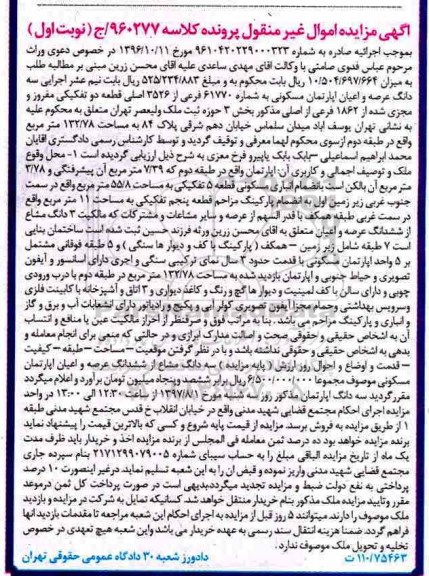 آگهی مزایده اموال غیر منقول پرونده کلاسه ۹۶۰۲۷۷/ج (نوبت اول)
بموجب اجرائیه صادره به شماره ۹۶۱۰۴۲۰۲۲۹۰۰۰۳۲۳ مورخ ۱۳۹۶/۱۰/۱۱ در خصوص دعوی وراث
مرحوم عباس فدوی صامتی با وکالت اقای مهدی ساعدی علیه اقای محسن زرین مبنی بر مطالبه طلب
به میزان ۱۰/۵۰۴/۶۹۷/۶۶۴ ریال بابت محکوم به و مبلغ ۵۲۵/۲۳۴/۸۸۳ ریال بابت نیم عشر اجرایی سه
دانگ عرصه و اعیان اپارتمان مسکونی به شماره ۶۱۷۷۰ فرعی از ۳۵۲۶ اصلی قطعه دو تفکیکی مفروز و
مجزی شده از ۱۸۶۲ فرعی از اصلی مذکور بخش ۳ حوزه ثبت ملک ولیعصر تهران متعلق به محکوم علیه
به نشانی تهران یوسف اباد میدان سلماس خیابان دهم شرقی پلاک ۸۴ به مساحت ۱۳۲/۷۸ متر مربع
واقع در طبقه دوم ازسوی محکوم لهما معرفی و توقیف گردید و توسط کارشناس رسمی دادگستری اقایان
محمد ابراهیم اسماعیلی –بابک بابک پاپیرو فرخ معزی به شرح ذیل ارزیابی گردیده است ۱- محل وقوع
ملک و توصیف اجمالی و کاربری آن: اپارتمان واقع در طبقه دوم که ۷/۳۹ متر مربع آن پیشرفتگی و ۳/۷۸
متر مربع آن بالکن است بانضمام انباری مسکونی قطعه ۵ تفکیکی به مساحت ۵۵/۸ متر مربع واقع در سمت
جنوب غربی زیر زمین به انضمام پارکینگ مزاحم قطعه پنجم تفکیکی به مساحت ۱۱ متر مربع واقع
در سمت غربی طبقه همکف با قدر السهم از عرصه و سایر مشاعات و مشترکات که مالکیت ۳ دانگ مشاع
از ششدانگ عرصه و اعیان متعلق به اقای محسن زرین ورثه فرزند حسین ثبت شده است ساختمان بنایی
است ۷ طبقه شامل زیر زمین – همکف (پارکینگ با کف و دیوار ها سنگی) و ۵ طبقه فوقانی مشتمل
بر ۵ واحد اپارتمان مسکونی با قدمت حدود ۳ سال نمای ترکیبی سنگی و اجری دارای اسانسور و آیفون
تصویری و حیاط جنوبی و اپارتمان بازدید شده به مساحت ۱۳۲/۷۸ متر مربع در طبقه دوم با درب ورودی
چوبی و دارای سالن با کف لمینیت و دیوار ها گچ و رنگ و کاغذ دیواری و ۳ اتاق و آشپزخانه با کابینت فلزی
وسرویس بهداشتی وحمام مجزا آیفون تصویری کولر آبی و پکیج و رادیاتور دارای انشعابات آب و برق و گاز
و انباری و پارکینگ مزاحم می باشد. بنا به مراتب فوق و صرفنظر از احراز مالکیت عین یا منافع و انتساب
آن به اشخاص حقیقی و حقوقی صحت و اصالت مدارک ابرازی و در حالتی که منعی برای انجام معامله و
بدهی به اشخاص حقیقی و حقوقی نداشته باشد و با در نظر گرفتن موقعیت – مساحت – طبقه – کیفیت
– قدمت و اوضاع و احوال روز ارزش (پایه مزایده) سه دانگ مشاع از ششدانگ عرصه و اعیان اپارتمان
مسکونی موصوف مجموعا ۶/۵۰۰/۰۰۰/۰۰۰ ریال برابر ششصد وپنجاه میلیون تومان برآورد و اعلام میگردد
مقررگردید سه دانگ اپارتمان مذکور روز شنبه مورخ ۱۳۹۷/۸/۱ از ساعت ۱۲:۳۰ الی ۱۳:۰۰ در واحد
مزایده اجرای احکام مجتمع قضایی شهید مدنی واقع در خیابان انقلاب خ قدس مجتمع شهید مدنی طبقه
۱ از طریق مزایده به فروش برسد. مزایده از قیمت پایه شروع و کسی که بالاترین قیمت را پیشنهاد نماید
برنده مزایده خواهد بود ده درصد ثمن معامله فی المجلس از برنده مزایده اخذ و خریدار باید ظرف مدت
یک ماه از تاریخ مزایده الباقی مبلغ را به حساب سیبای شماره ۲۱۷۱۲۹۹۰۷۹۰۰۵ بنام سپرده جاری
مجتمع قضایی شهید مدنی واریز نموده و قبض ان را به این شعبه تسلیم نماید. درغیر اینصورت ۱۰ درصد
پرداختی به نفع دولت ضبط و مزایده تجدید میگرددبدیهی است در صورت پرداخت کل ثمن درموعد
مقرر وتایید مزایده ملک مذکور بنام خریدار منتقل خواهد شد. کسانیکه تمایل به شرکت در مزایده و بازدید
ملک موصوف را دارند. میتوانند ۵ روز قبل از مزایده به اجرای احکام این شعبه مراجعه تا مقدمات بازدید انها
فراهم گردد. ضمنا هزینه انتقال سند رسمی به عهده خریدار می باشد واین شعبه هیچ تعهدی در خصوص
تخلیه و تحویل ملک موصوف ندارد.
۱۱۰/۷۵۴۶۳ ت دادورز شعبه ۳۰ دادگاه عمومی حقوقی تهران